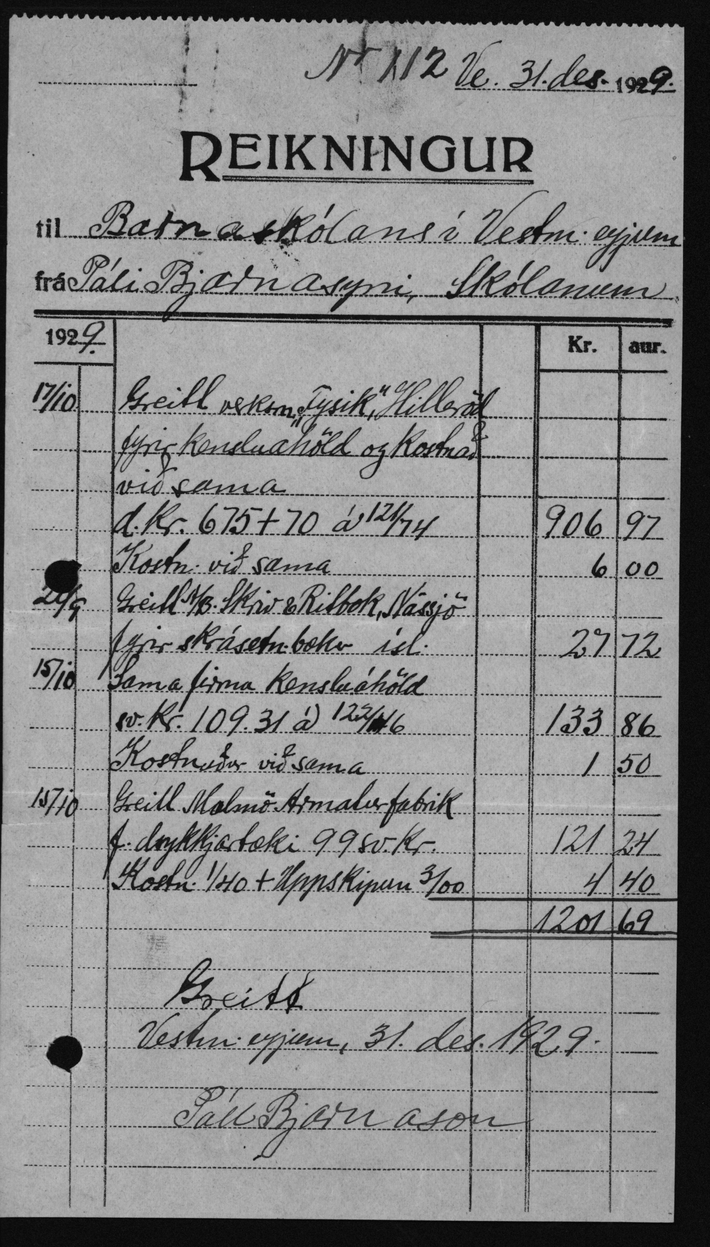 Nr 112 Ve. 31. des. 1929.
REIKNINGUR
til Barnaskólans í Vestm.eyjum
frá Páli Bjarnasyni, Skólanum
1929. Kr. aur.
17/10 Greitt verksm. "Fysik", Hilleröd
fyrir kensluáhöld og kostnað
við sama
d. Kr. 675 + 70 á 121/74 906 97
Kostn. við sama 6 00
Greitt A/B. Skriv & Ritbok, Nässjö
fyrir skrásetn.bækur ísl. 27 72
15/10 Sama firma kensluáhöld
sv. Kr. 109.31 á 122/46 133 86
Kostnaður við sama 1 50
15/10 Greitt Malmö Armaturfabrik
f. drykkjartæki 99 sv. Kr. 121 24
Kostn. 1/40 + Uppskipun 3/00 4 40
1201 69
Greitt
Vestm.eyjum, 31. des. 1929.
Páll Bjarnason